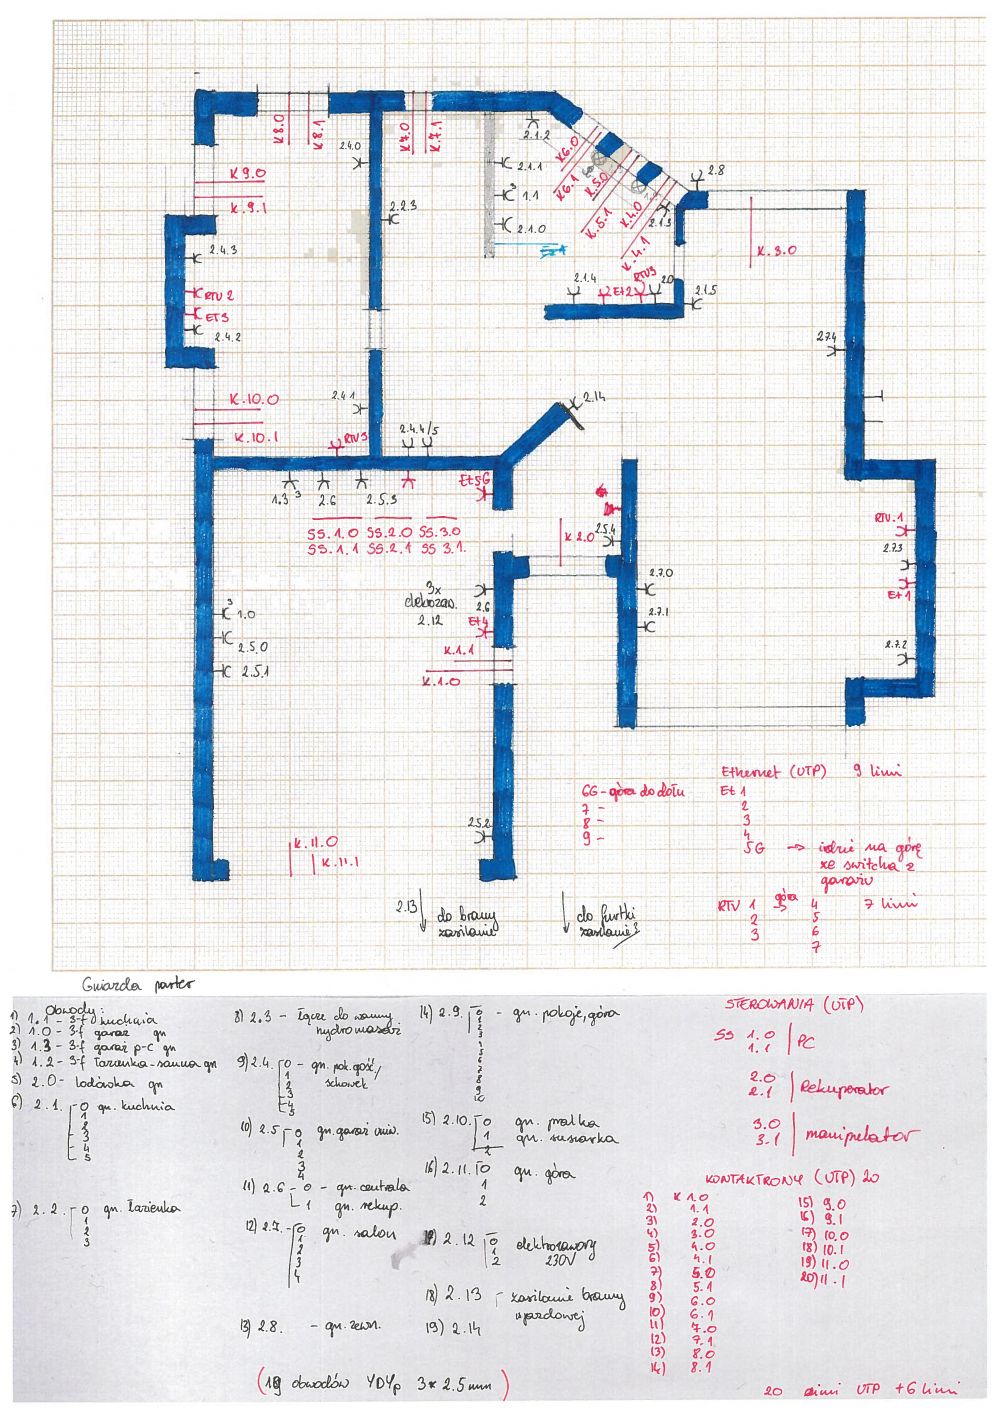 K8.0
K8.1
K7.0
K.7.1
2.4.0
2.1.2
K6.0
K6.1
K.5.0
K.5.1
K.4.0
K.4.1
2.8
2.1.1
3
1.1
2.1.0
2.1.3
K9.0
K.9.1
2.2.3
K.3.0
2.4.3
RTV 2
ET3
2.4.2
RTV3
2.1.4
Et2
2.0
2.1.5
2.7.4
K.10.0
K.10.1
2.4.1
2.14
RTV3
2.4.4/5
Et5G
1.3 3
2.6
2.5.3
SS.1.0 SS.2.0 SS.3.0
SS.1.1 SS.2.1 SS 3.1.
K 2.0
2.5.4
RTV.1
2.7.3
Et1
3x
elektrozaw.
2.12
2.6
Et4
2.7.0
2.7.1
3
1.0
2.5.0
2.5.1
K.1.1
K.1.0
2.7.2
2.5.2
K.11.0
K.11.1
Ethernet (UTP) 9 linii
6G - góra do dołu
7 -
8 -
9 -
Et 1
2
3
4
5G → idzie na górę
ze switcha z
garażu
RTV 1 góra → 4 7 linii
2 5
3 6
7
2.13 do bramy
zasilanie
do furtki
zasilanie?
Gniazda parter
Obwody:
1) 1.1 - 3-f kuchnia
2) 1.0 - 3-f garaż gn
3) 1.3 - 3-f garaż p-c gn
4) 1.2 - 3-f łazienka-sauna gn
5) 2.0 - lodówka gn
6) 2.1. 0 gn. kuchnia
1
2
3
4
5
7) 2.2. 0 gn. łazienka
1
2
3
8) 2.3 - łącze do wanny
hydromasaż
9) 2.4. 0 - gn. pok. gość/
schowek
1
2
3
4
5
10) 2.5 0 gn. garaż oniw.
1
2
3
4
11) 2.6 - 0 - gn. centrala
1 gn. rekup.
12) 2.7. 0 gn. salon
1
2
3
4
13) 2.8. - gn. zewn.
14) 2.9. 0 - gn. pokoje, góra
1
2
3
4
5
6
7
8
9
10
15) 2.10. 0 gn. pralka
1 gn. suszarka
2
16) 2.11. 0 gn. góra
1
2
17) 2.12 0 elektrozawory
1 230V
2
18) 2.13 zasilanie bramy
wjazdowej
19) 2.14
(19 obwodów YDYp 3*2.5mm)
STEROWANIA (UTP)
SS 1.0
1.1 | PC
2.0
2.1 | Rekuperator
3.0
3.1 | manipulator
KONTAKTRONY (UTP) 20
1) K 1.0
2) 1.1
3) 2.0
4) 3.0
5) 4.0
6) 4.1
7) 5.0
8) 5.1
9) 6.0
10) 6.1
11) 7.0
12) 7.1
13) 8.0
14) 8.1
15) 9.0
16) 9.1
17) 10.0
18) 10.1
19) 11.0
20) 11.1
20 linii UTP +6 linii